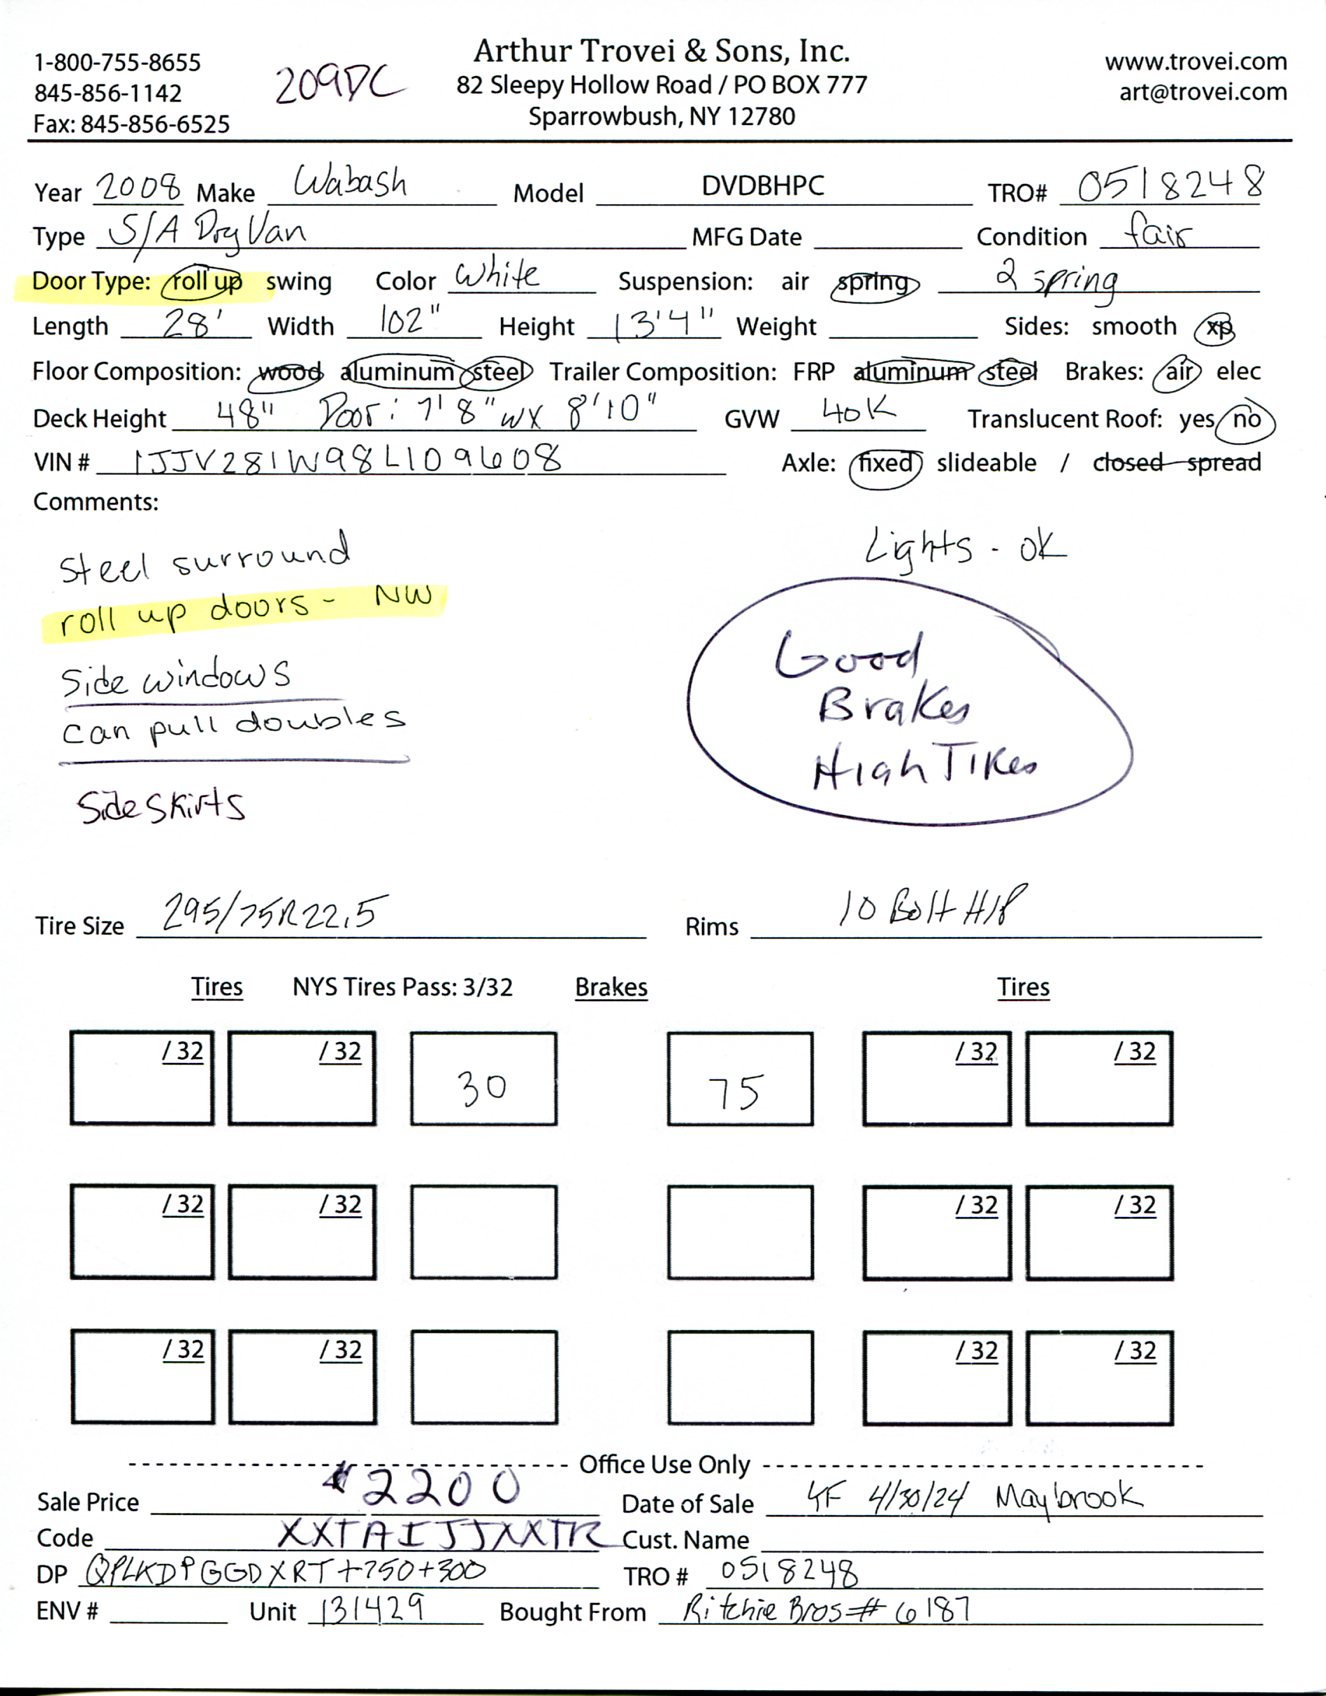 1-800-755-8655
845-856-1142
Fax: 845-856-6525
209DC
Arthur Trovei & Sons, Inc.
82 Sleepy Hollow Road / PO BOX 777
Sparrowbush, NY 12780
www.trovei.com
art@trovei.com
Year 2008 Make Wabash Model DVDBHPC TRO# 0518248
Type S/A Dry Van MFG Date Condition fair
Door Type: roll up swing Color White Suspension: air spring 2 spring
Length 28' Width 102" Height 13'4" Weight Sides: smooth xp
Floor Composition: wood aluminum steel Trailer Composition: FRP aluminum steel Brakes: air elec
Deck Height 48" Door: 7'8"w x 8'10" GVW 40K Translucent Roof: yes no
VIN # 1JJV281W98L109608 Axle: fixed slideable / closed spread
Comments:
Steel surround
roll up doors - NW
Side windows
can pull doubles
Side Skirts
Lights - OK
Good
Brakes
High Tires
Tire Size 295/75R22.5 Rims 10 Bolt H/P
Tires NYS Tires Pass: 3/32 Brakes Tires
/32 /32 30 75 /32 /32
/32 /32 /32 /32
/32 /32 /32 /32
Office Use Only
Sale Price $2200 Date of Sale 4/30/24 Maybrook
Code XXTAIJJXXTR Cust. Name
DP QPLKDPGGDXRT+750+300 TRO # 0518248
ENV # Unit 131429 Bought From Ritchie Bros # 6187